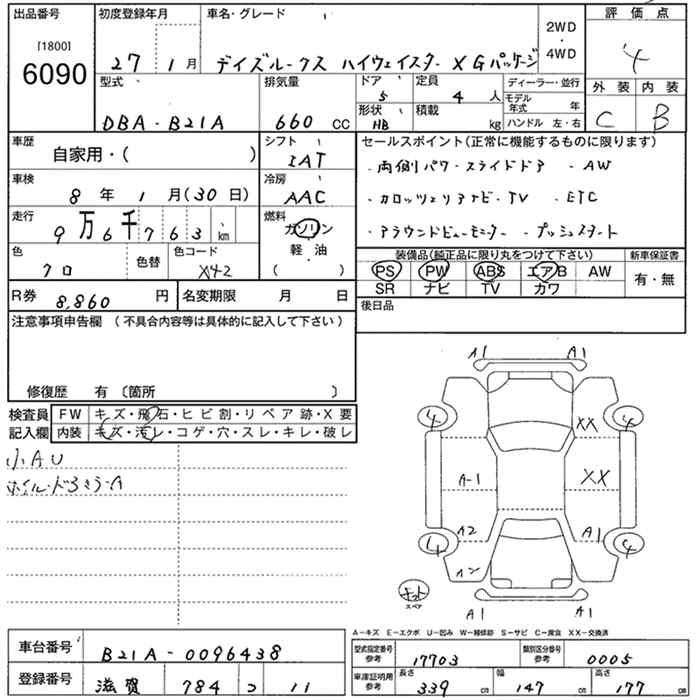 出品番号 初度登録年月 車名・グレード 2WD・4WD 評価点
[1800]
6090 27年1月 デイズルークス ハイウェイスター X Gパッケージ 4
型式 排気量 ドア 定員 ディーラー・並行 外装 内装
5 4人 モデル年式 年
DBA-B21A 660 CC 形状 HB 積載 kg ハンドル 左・右 C B
車歴 シフト セールスポイント(正常に機能するものに限ります)
自家用・( ) IAT ・両側パワースライドドア ・AW
車検 冷房
8年1月(30日) AAC ・カロッツェリアナビ・TV ・ETC
走行 燃料
9万6千763km ガソリン ・アラウンドビューモニター ・プッシュスタート
軽・油
色 色替 色コード ( ) 装備品(純正品に限り丸をつけて下さい) 新車保証書
クロ X42 PS PW ABS エアB AW 有・無
SR ナビ TV カワ
R券 8,860円 名変期限 月 日 後日品
注意事項申告欄 (不具合内容等は具体的に記入して下さい)
修復歴 有 〔箇所 〕
検査員 FW キズ・飛石・ヒビ割・リペア跡・X要
記入欄 内装 キズ・汚レ・コゲ・穴・スレ・キレ・破レ
小AU
A1 A1
4 XX 4
A-1 XX
A2 A1
4 4
キット
スペア
A1 A1
A-キズ E-エクボ U-凹み W-補修跡 S-サビ C-腐食 XX-交換済
車台番号 B21A-0096438 型式指定番号 参考 17703 類別区分番号 参考 0005
登録番号 滋賀 784 コ 11 車庫証明用 参考 長さ 339cm 幅 147cm 高さ 177cm